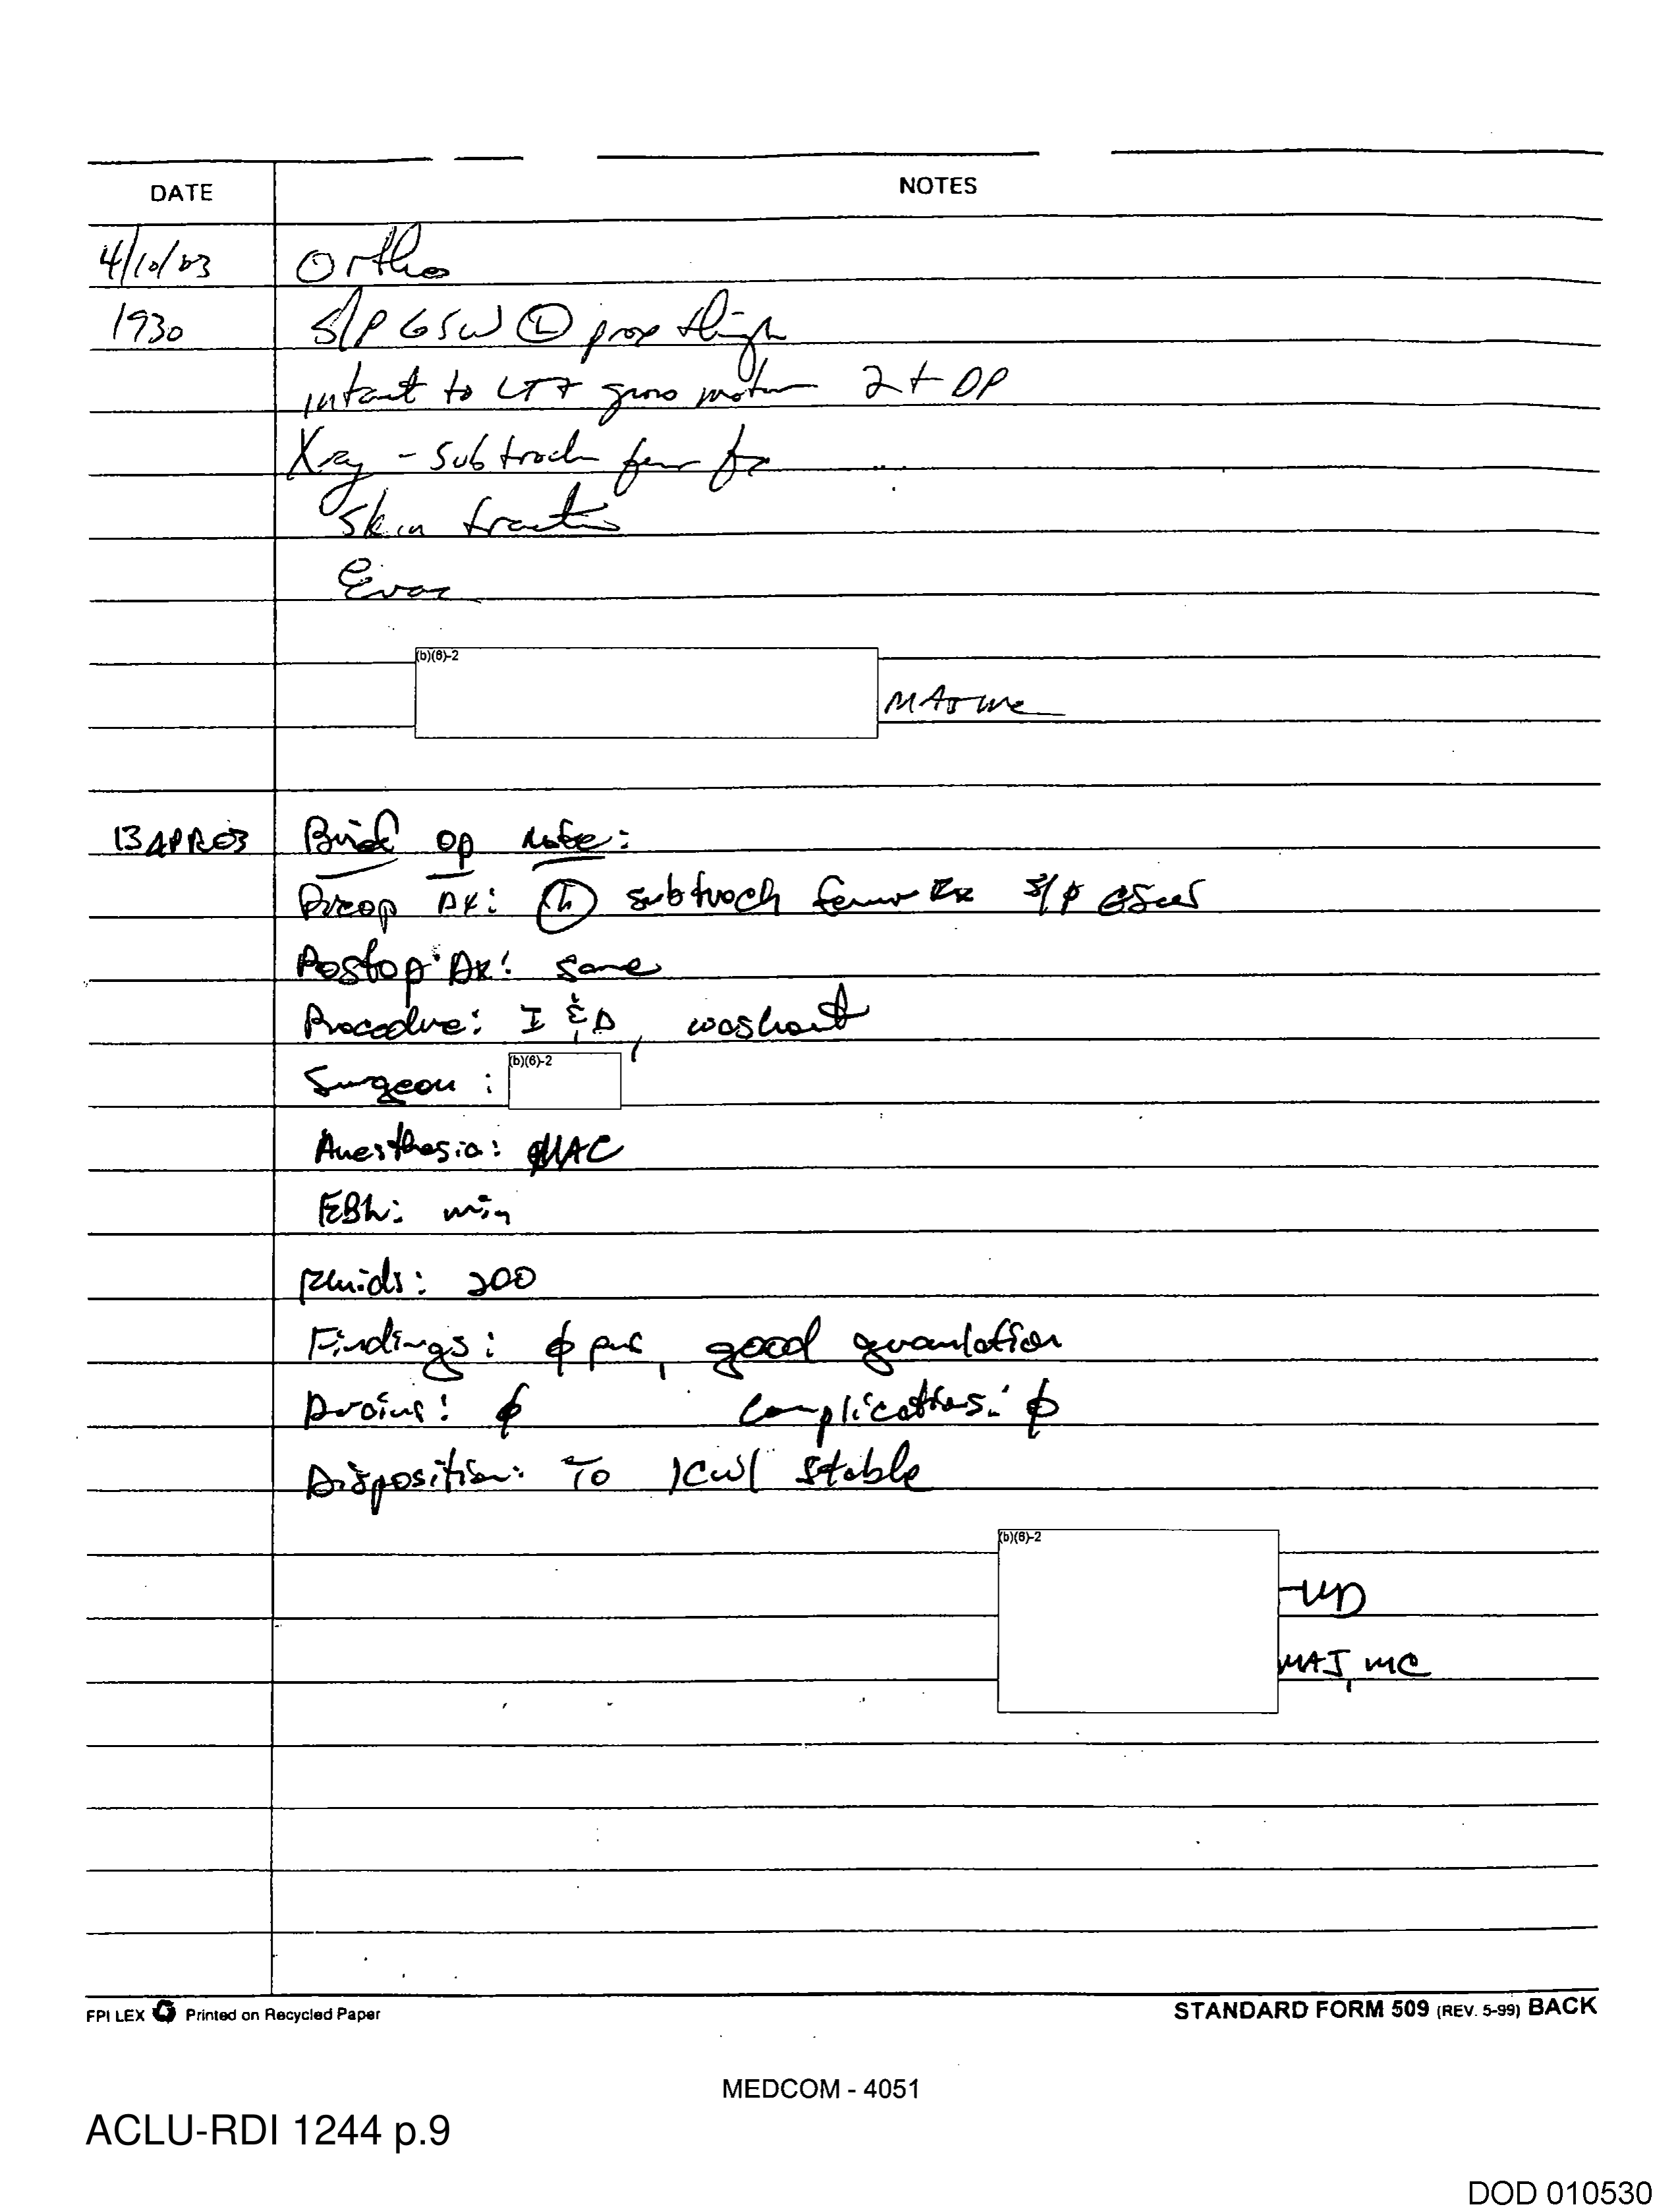 DATE NOTES
4/10/03 Ortho
1930 S/P GSW Ⓛ prox thigh
intact to LT + gross motor 2+ DP
Xray - subtroch femur fx
Skin traction
Evac
(b)(6)-2
MAJ MC
13 APR 03 Brief op note:
Preop Dx: Ⓛ subtroch femur Fx s/p GSW
Postop Dx: same
Procedure: I & D, washout
Surgeon: (b)(6)-2
Anesthesia: MAC
EBL: min
Fluids: 200
Findings: ϕ pus, good granulation
Drains: ϕ Complications: ϕ
Disposition: To ICW/ stable
(b)(6)-2
MD
MAJ, MC
FPI LEX Printed on Recycled Paper STANDARD FORM 509 (REV. 5-99) BACK
MEDCOM - 4051
ACLU-RDI 1244 p.9
DOD 010530